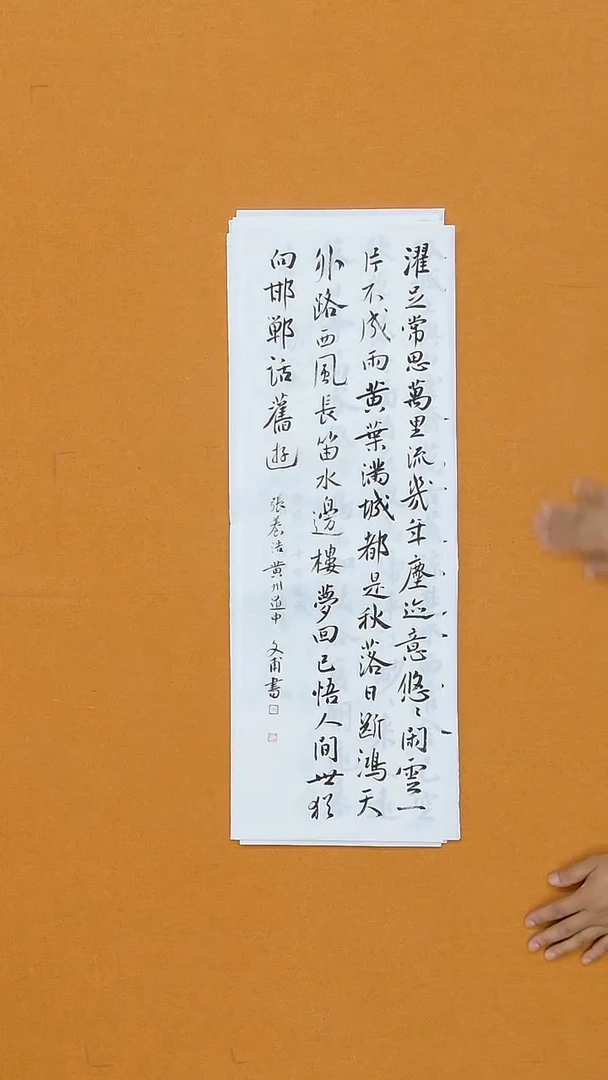 濯足常思萬里流幾年塵迹意悠〻闲雲一
片不成雨黄葉满城都是秋落日断鴻天
外路西風長笛水邊樓夢回已悟人间世猶
向邯鄲話舊遊
張養浩黄州道中
文甫書